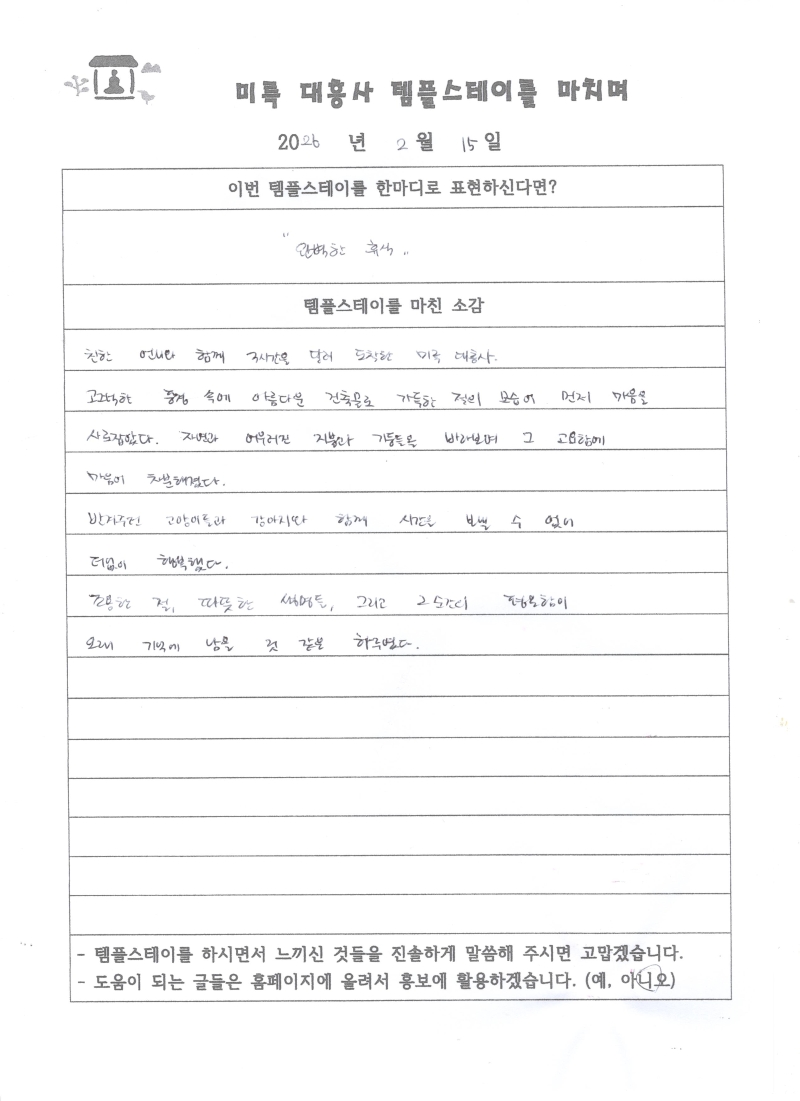 미륵 대흥사 템플스테이를 마치며
2026 년 2 월 15 일
이번 템플스테이를 한마디로 표현하신다면?
"완벽한 휴식"
템플스테이를 마친 소감
친한 언니와 함께 3시간을 달려 도착한 미륵 대흥사.
고즈넉한 풍경 속에 아름다운 건축물로 가득한 절의 모습이 먼저 마음을
사로잡았다. 자연과 어우러진 지붕과 기둥들을 바라보며 그 고요함에
마음이 차분해졌다.
반겨주던 고양이들과 강아지와 함께 시간을 보낼 수 있어
더없이 행복했다.
조용한 절, 따뜻한 생명들, 그리고 그 순간의 평온함이
오래 기억에 남을 것 같은 하루였다.
- 템플스테이를 하시면서 느끼신 것들을 진솔하게 말씀해 주시면 고맙겠습니다.
- 도움이 되는 글들은 홈페이지에 올려서 홍보에 활용하겠습니다. (예, 아니오)